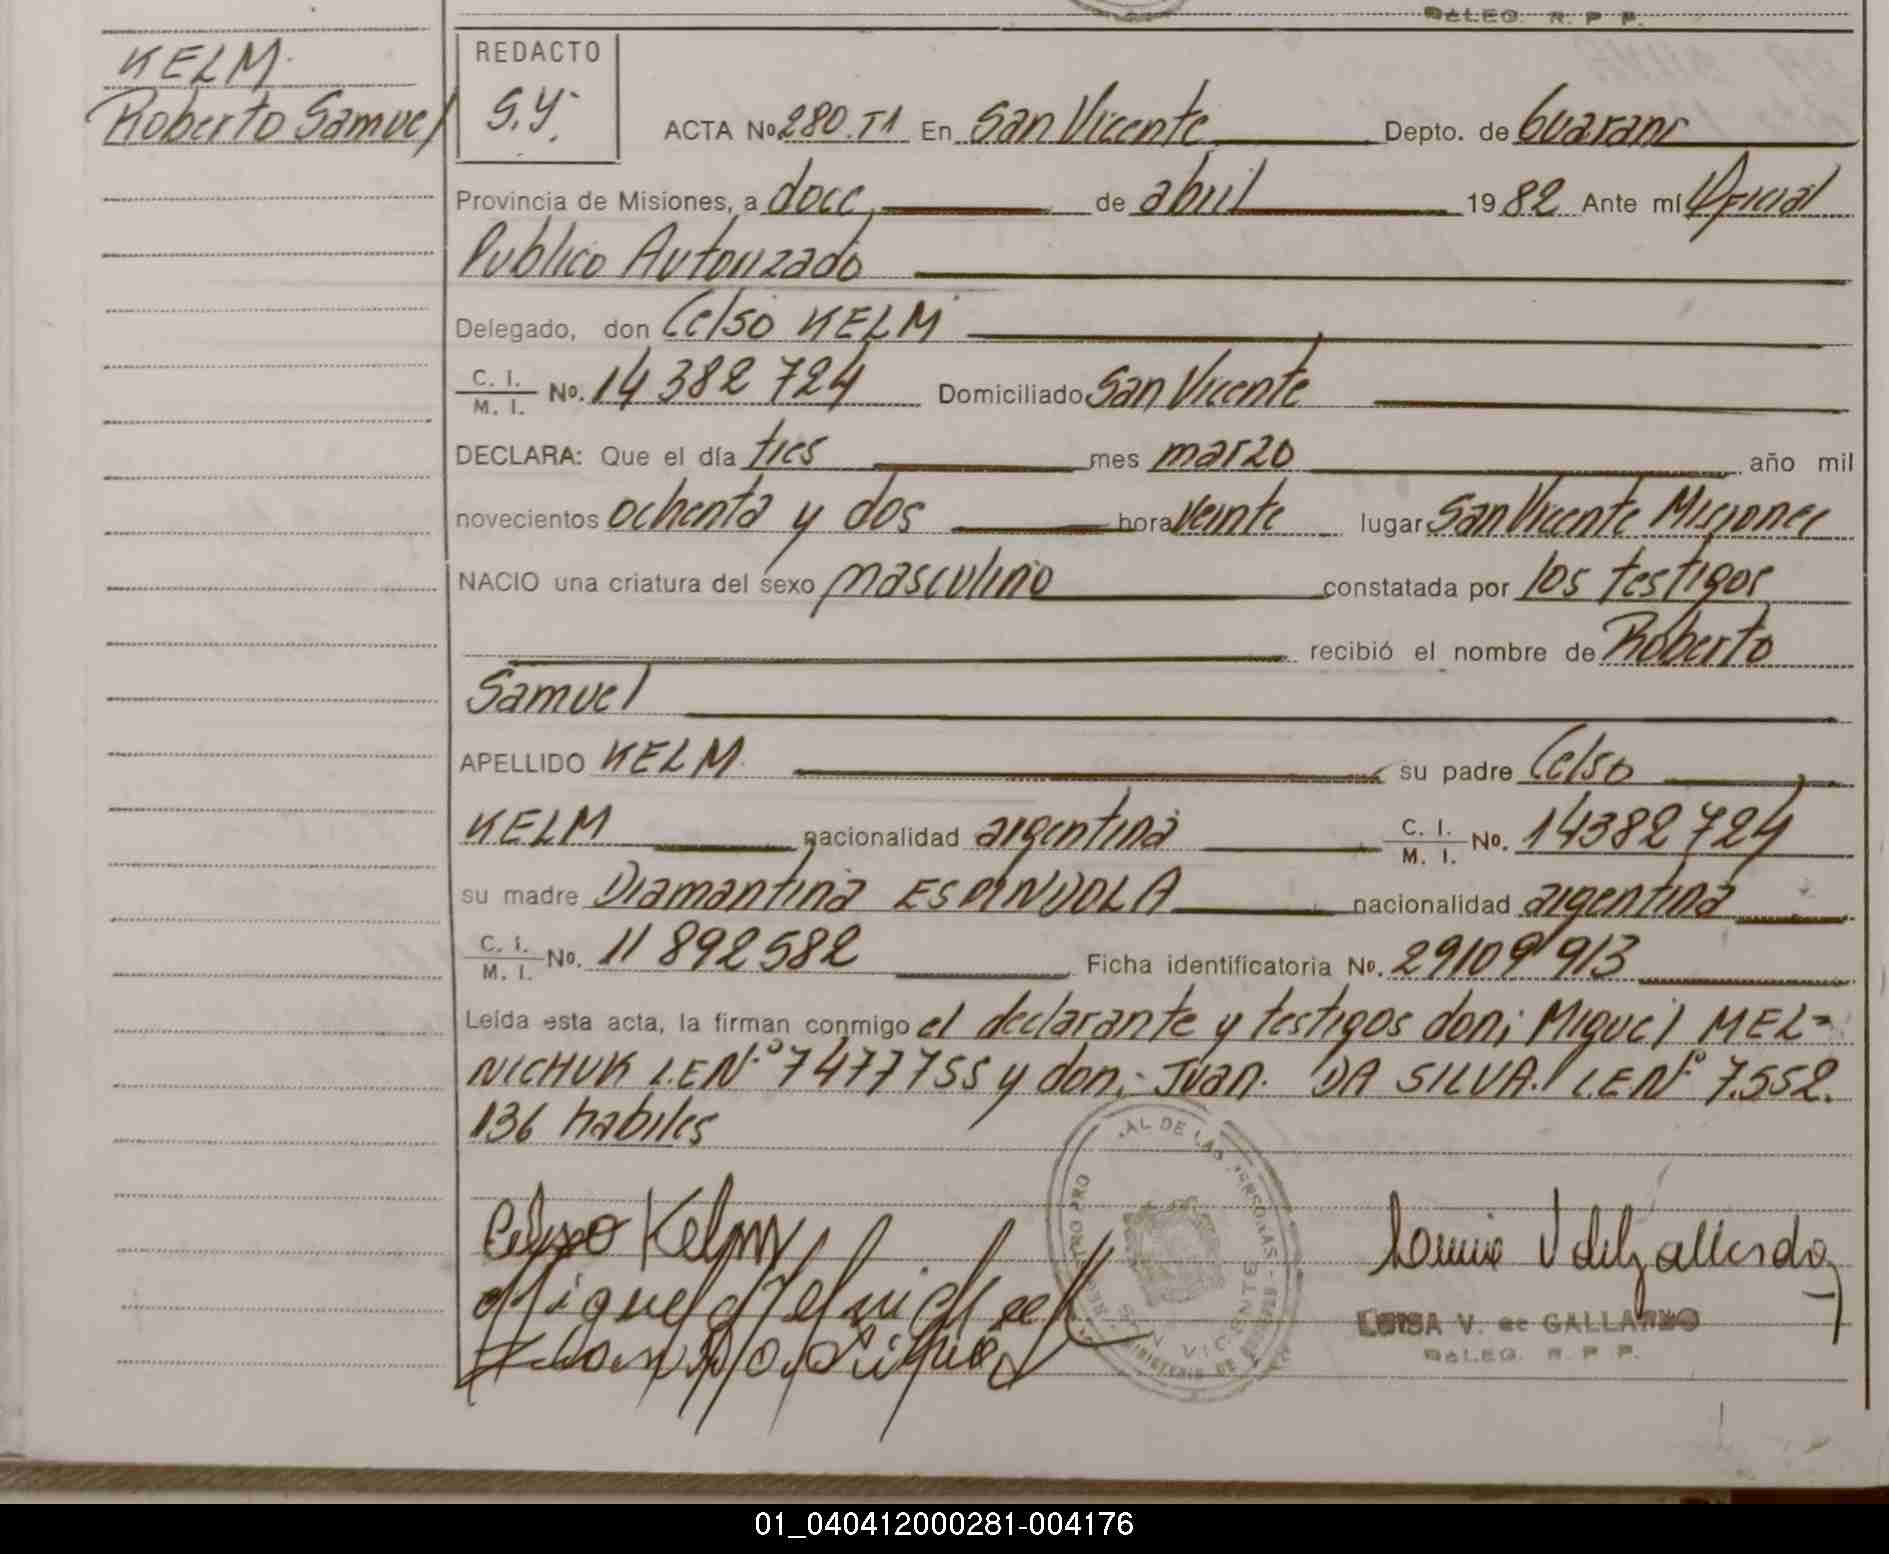 DELEG. R. P. P.
KELM
Roberto Samuel
REDACTO
G.Y.
ACTA No 280. T1 En San Vicente Depto. de Guarani
Provincia de Misiones, a doce de abril 1982 Ante mí Oficial
Publico Autorizado
Delegado, don Celso KELM
C. I. / M. I. No. 14 382 724 Domiciliado San Vicente
DECLARA: Que el día tres mes marzo año mil
novecientos ochenta y dos hora veinte lugar San Vicente Misiones
NACIO una criatura del sexo masculino constatada por los testigos
recibió el nombre de Roberto
Samuel
APELLIDO KELM su padre Celso
KELM nacionalidad argentina C. I. / M. I. No. 14382724
su madre Diamantina ESPINDOLA nacionalidad argentina
C. I. / M. I. No. 11 892582 Ficha identificatoria No. 29109913
Leída esta acta, la firman conmigo el declarante y testigos don; Miguel MEL=
NICHUK L.E Nº 7477755 y don:- Juan. DA SILVA. L.E Nº 7.552.
136 habiles
Celso Kelm
Miguel
AL DE LAS PERSONAS
SAN VICENTE
MINISTERIO DE
LUISA V. de GALLARDO
DELEG. R. P. P.
01_040412000281-004176